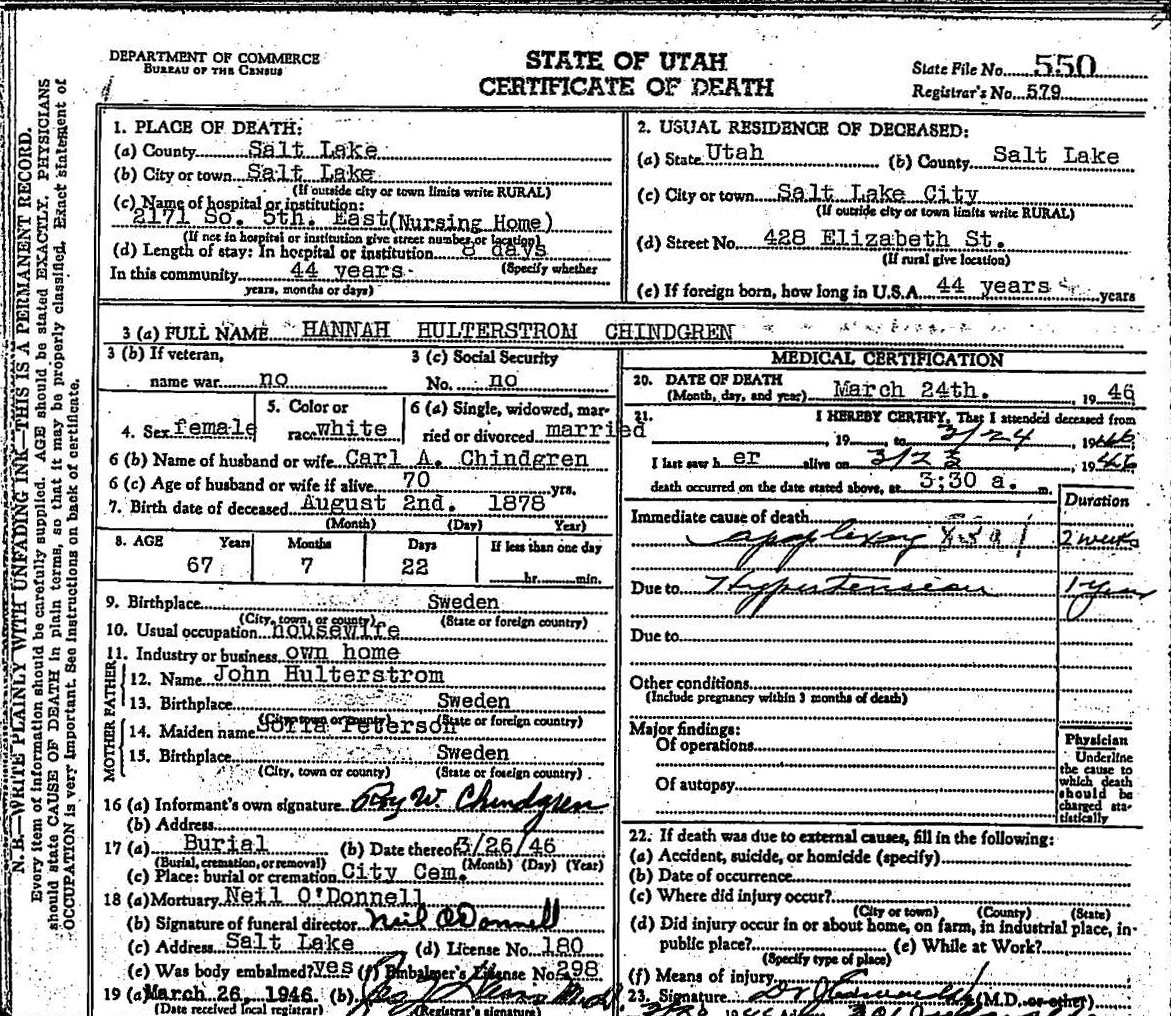 DEPARTMENT OF COMMERCE
BUREAU OF THE CENSUS
STATE OF UTAH
CERTIFICATE OF DEATH
State File No. 550
Registrar's No. 579
N. B.—WRITE PLAINLY WITH UNFADING INK—THIS IS A PERMANENT RECORD.
Every item of information should be carefully supplied. AGE should be stated EXACTLY. PHYSICIANS
should state CAUSE OF DEATH in plain terms, so that it may be properly classified. Exact statement of
OCCUPATION is very important. See instructions on back of certificate.
1. PLACE OF DEATH:
(a) County Salt Lake
(b) City or town Salt Lake
(If outside city or town limits write RURAL)
(c) Name of hospital or institution:
2171 So. 5th. East (Nursing Home)
(If not in hospital or institution give street number or location)
(d) Length of stay: In hospital or institution 8 days
In this community 44 years (Specify whether
years, months or days)
2. USUAL RESIDENCE OF DECEASED:
(a) State Utah (b) County Salt Lake
(c) City or town Salt Lake City
(If outside city or town limits write RURAL)
(d) Street No. 428 Elizabeth St.
(If rural give location)
(e) If foreign born, how long in U.S.A. 44 years years
3 (a) FULL NAME HANNAH HULTERSTROM CHINDGREN
3 (b) If veteran, 3 (c) Social Security
name war no No. no
4. Sex female 5. Color or race white 6 (a) Single, widowed, married or divorced married
6 (b) Name of husband or wife Carl A. Chindgren
6 (c) Age of husband or wife if alive 70 yrs.
7. Birth date of deceased August 2nd. 1878
(Month) (Day) Year)
8. AGE Years Months Days If less than one day
67 7 22 hr. min.
9. Birthplace Sweden
(City, town, or county) (State or foreign country)
10. Usual occupation housewife
11. Industry or business own home
FATHER
12. Name John Hulterstrom
13. Birthplace Sweden
(City, town or county) (State or foreign country)
MOTHER
14. Maiden name Sofia Peterson
15. Birthplace Sweden
(City, town or county) (State or foreign country)
16 (a) Informant's own signature Roy W. Chindgren
(b) Address
17 (a) Burial (b) Date thereof 3/26/46
(Burial, cremation, or removal) (Month) (Day) (Year)
(c) Place: burial or cremation City Cem.
18 (a) Mortuary Neil O'Donnell
(b) Signature of funeral director Neil O'Donnell
(c) Address Salt Lake (d) License No. 180
(e) Was body embalmed? yes (f) Embalmer's License No. 298
19 (a) March 26, 1946. (b)
(Date received local registrar) (Registrar's signature)
MEDICAL CERTIFICATION
20. DATE OF DEATH March 24th. , 19 46
(Month, day, and year)
21. I HEREBY CERTIFY, That I attended deceased from
, 19 to 3/24 , 1946
I last saw h er alive on 3/23 , 1946
death occurred on the date stated above, at 3:30 a. m.
Duration
Immediate cause of death
apoplexy 2 weeks
Due to Hypertension 1 year
Due to
Other conditions
(Include pregnancy within 3 months of death)
Major findings:
Of operations
Of autopsy
Physician
Underline
the cause to
which death
should be
charged sta-
tistically
22. If death was due to external causes, fill in the following:
(a) Accident, suicide, or homicide (specify)
(b) Date of occurrence
(c) Where did injury occur?
(City or town) (County) (State)
(d) Did injury occur in or about home, on farm, in industrial place, in
public place? (e) While at Work?
(Specify type of place)
(f) Means of injury
23. Signature (M.D. or other)